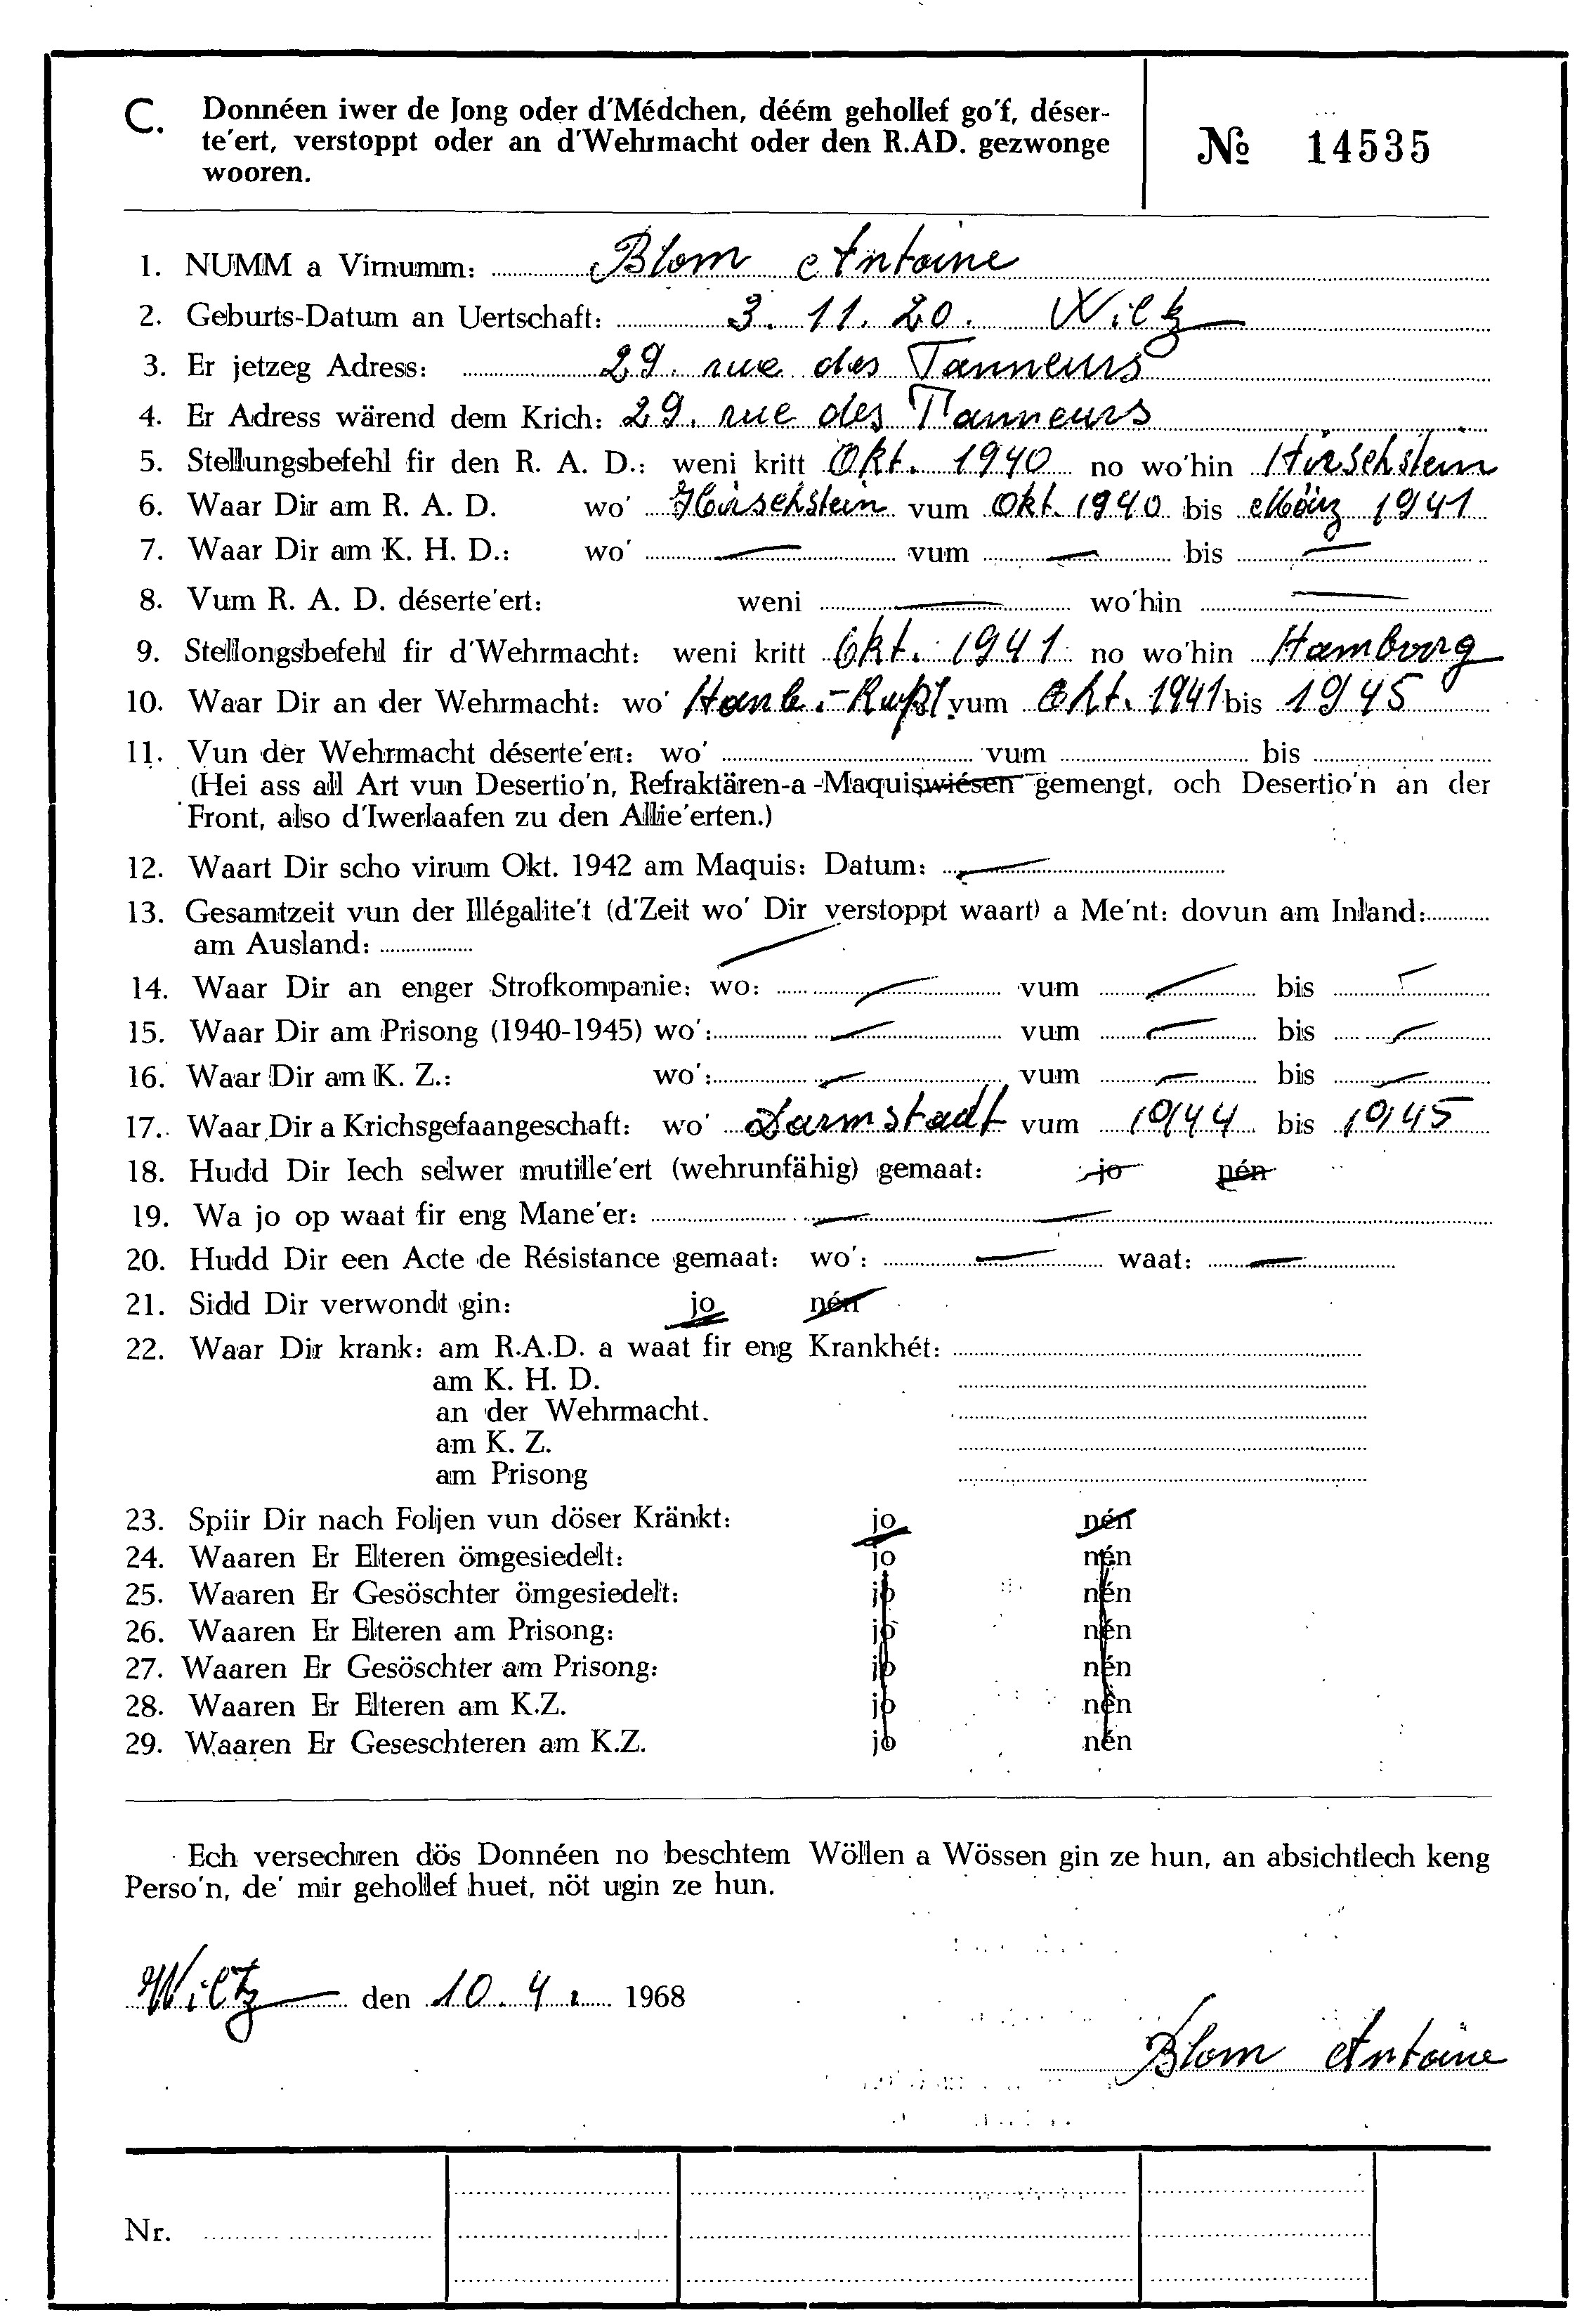 C. Donnéen iwer de Jong oder d'Médchen, déém gehollef go'f, déser-
te'ert, verstoppt oder an d'Wehrmacht oder den R.AD. gezwonge
wooren.
№ 14535
1. NUMM a Virnumm: Blom Antoine
2. Geburts-Datum an Uertschaft: 3. 11. 20. Wiltz
3. Er jetzeg Adress: 29. rue des Tanneurs
4. Er Adress wärend dem Krich: 29. rue des Tanneurs
5. Stellungsbefehl fir den R. A. D.: weni kritt Okt. 1940 no wo'hin Hirschstein
6. Waar Dir am R. A. D. wo' Hirschstein vum Okt. 1940 bis März 1941
7. Waar Dir am K. H. D.: wo' — vum — bis —
8. Vum R. A. D. déserte'ert: weni — wo'hin —
9. Stellongsbefehl fir d'Wehrmacht: weni kritt Okt. 1941 no wo'hin Hamburg
10. Waar Dir an der Wehrmacht: wo' Hamb.-Rußl. vum Okt. 1941 bis 1945
11. Vun der Wehrmacht déserte'ert: wo' vum bis
(Hei ass all Art vun Desertio'n, Refraktären-a -Maquiswiésen gemengt, och Desertio'n an der
Front, also d'Iwerlaafen zu den Allie'erten.)
12. Waart Dir scho virum Okt. 1942 am Maquis: Datum: —
13. Gesamtzeit vun der Illégalite't (d'Zeit wo' Dir verstoppt waart) a Me'nt: dovun am Inland:
am Ausland:
14. Waar Dir an enger Strofkompanie: wo: — vum — bis —
15. Waar Dir am Prisong (1940-1945) wo': — vum — bis —
16. Waar Dir am K. Z.: wo': — vum — bis —
17. Waar Dir a Krichsgefaangeschaft: wo' Darmstadt vum 1944 bis 1945
18. Hudd Dir Iech selwer mutille'ert (wehrunfähig) gemaat: jo nén
19. Wa jo op waat fir eng Mane'er: — —
20. Hudd Dir een Acte de Résistance gemaat: wo': — waat: —
21. Sidd Dir verwondt gin: jo nén
22. Waar Dir krank: am R.A.D. a waat fir eng Krankhét:
am K. H. D.
an der Wehrmacht.
am K. Z.
am Prisong
23. Spiir Dir nach Foljen vun döser Kränkt: jo nén
24. Waaren Er Elteren ömgesiedelt: jo nén
25. Waaren Er Gesöschter ömgesiedelt: jo nén
26. Waaren Er Elteren am Prisong: jo nén
27. Waaren Er Gesöschter am Prisong: jo nén
28. Waaren Er Elteren am K.Z. jo nén
29. Waaren Er Geseschteren am K.Z. jo nén
Ech versechren dös Donnéen no beschtem Wöllen a Wössen gin ze hun, an absichtlech keng
Perso'n, de' mir gehollef huet, nöt ugin ze hun.
Wiltz den 10. 4. 1968
Blom Antoine
Nr.